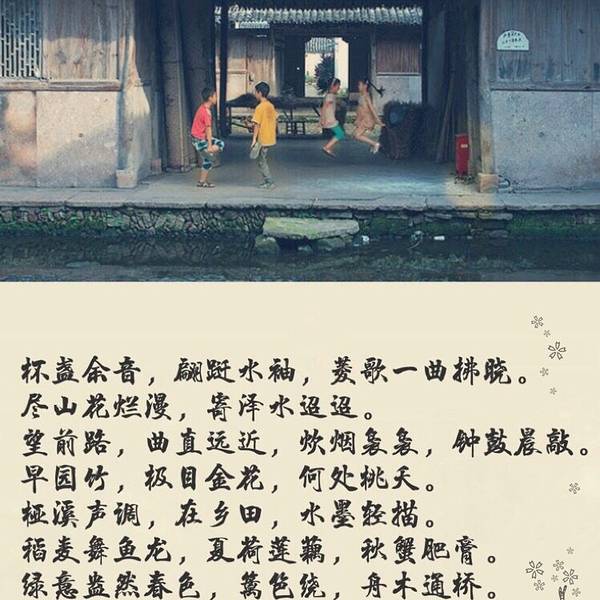 杯盏余音，翩跹水袖，菱歌一曲拂晓。
尽山花烂漫，寄泽水迢迢。
望前路，曲直远近，炊烟袅袅，钟鼓晨敲。
早园竹，极目金花，何处桃夭。
桠溪声调，在乡田，水墨轻描。
稻麦舞鱼龙，夏荷莲藕，秋蟹肥膏。
绿意盎然春色，篱笆绕，舟木通桥。